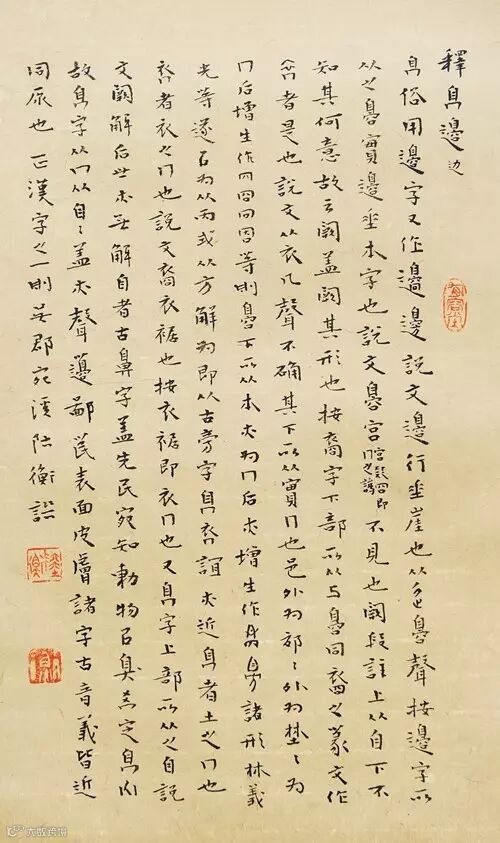 釋臱邊 边
臱俗用邊字又作邊邊說文邊行垂崖也从辵臱聲按邊字所
从之臱實邊垂本字也說文臱宮不見也闕段註上从自下不
知其何意故云闕蓋闕其形也按裔字下部所从与臱同裔之篆文作
者是也說文从衣㕯聲不确其下所从實冂也邑外为郊〻外为埜〻为
冂后增生作等則臱下所从本亦为冂后亦增生作諸形林義
光等遂㠯为从丙或从方解为即从古旁字臱裔誼亦近臱者土之冂也
裔者衣之冂也說文裔衣裾也按衣裾即衣冂也又臱字上部所从之自說
文闕解后世亦無解自者古鼻字蓋先民知動物㠯臭定臱
故臱字从冂从自〻蓋亦聲邊鄙氓表面皮膚諸字古音義皆近
同原也 正漢字之一則吳郡宛溪陸衡譔